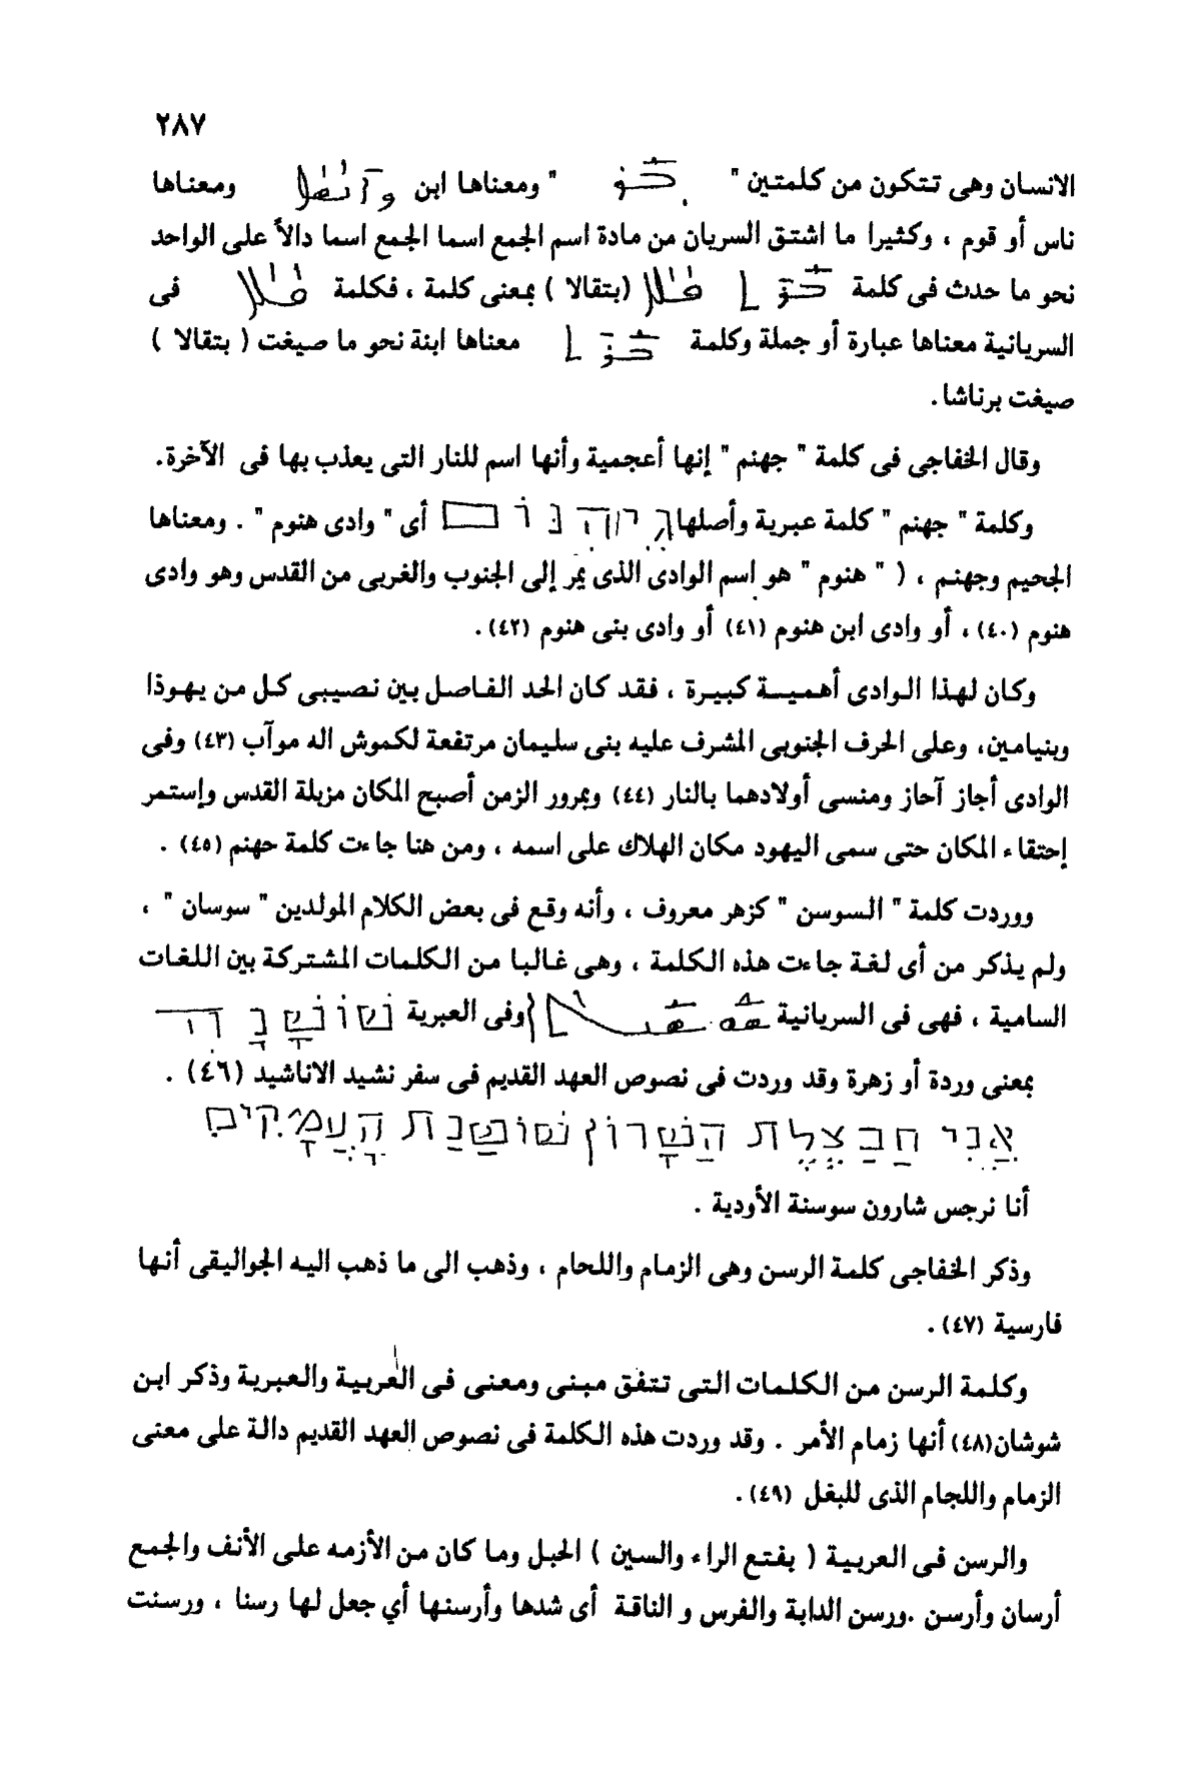 ٢٨٧
الانسان وهى تتكون من كلمتين " " ومعناها ابن و ومعناها
ناس أو قوم ، وكثيرا ما اشتق السريان من مادة اسم الجمع اسما الجمع اسما دالاً على الواحد
نحو ما حدث فى كلمة (بتقالا ) بمعنى كلمة ، فكلمة فى
السريانية معناها عبارة أو جملة وكلمة معناها ابنة نحو ما صيغت ( بتقالا )
صيغت برناشا.
وقال الخفاجى فى كلمة " جهنم " إنها أعجمية وأنها اسم للنار التى يعذب بها فى الآخرة.
وكلمة " جهنم " كلمة عبرية وأصلها أى " وادى هنوم " . ومعناها
الجحيم وجهنم ، ( " هنوم " هو إسم الوادى الذى يمر إلى الجنوب والغربى من القدس وهو وادى
هنوم (٤٠) ، أو وادى ابن هنوم (٤١) أو وادى بنى هنوم (٤٢) .
وكان لهذا الوادى أهمية كبيرة ، فقد كان الحد الفاصل بين نصيبى كل من يهوذا
وبنيامين، وعلى الحرف الجنوبى المشرف عليه بنى سليمان مرتفعة لكموش اله موآب (٤٣) وفى
الوادى أجاز آحاز ومنسى أولادهما بالنار (٤٤) وبمرور الزمن أصبح المكان مزبلة القدس وإستمر
إحتقاء المكان حتى سمى اليهود مكان الهلاك على اسمه ، ومن هنا جاءت كلمة حهنم (٤٥) .
ووردت كلمة " السوسن " كزهر معروف ، وأنه وقع فى بعض الكلام المولدين " سوسان " ،
ولم يذكر من أى لغة جاءت هذه الكلمة ، وهى غالبا من الكلمات المشتركة بين اللغات
السامية ، فهى فى السريانية وفى العبرية שׁוֹשַׁנָּה
بمعنى وردة أو زهرة وقد وردت فى نصوص العهد القديم فى سفر نشيد الاناشيد (٤٦) .
אֲנִי חֲבַצֶּלֶת הַשָּׁרוֹן שׁוֹשַׁנַּת הָעֲמָקִים
أنا نرجس شارون سوسنة الأودية .
وذكر الخفاجى كلمة الرسن وهى الزمام واللحام ، وذهب الى ما ذهب اليه الجواليقى أنها
فارسية (٤٧) .
وكلمة الرسن من الكلمات التى تتفق مبنى ومعنى فى العربية والعبرية وذكر ابن
شوشان(٤٨) أنها زمام الأمر . وقد وردت هذه الكلمة فى نصوص العهد القديم دالة على معنى
الزمام واللجام الذى للبغل (٤٩) .
والرسن فى العربية ( بفتع الراء والسين ) الحبل وما كان من الأزمه على الأنف والجمع
أرسان وأرسن .ورسن الدابة والفرس و الناقة أى شدها وأرسنها أي جعل لها رسنا ، ورسنت